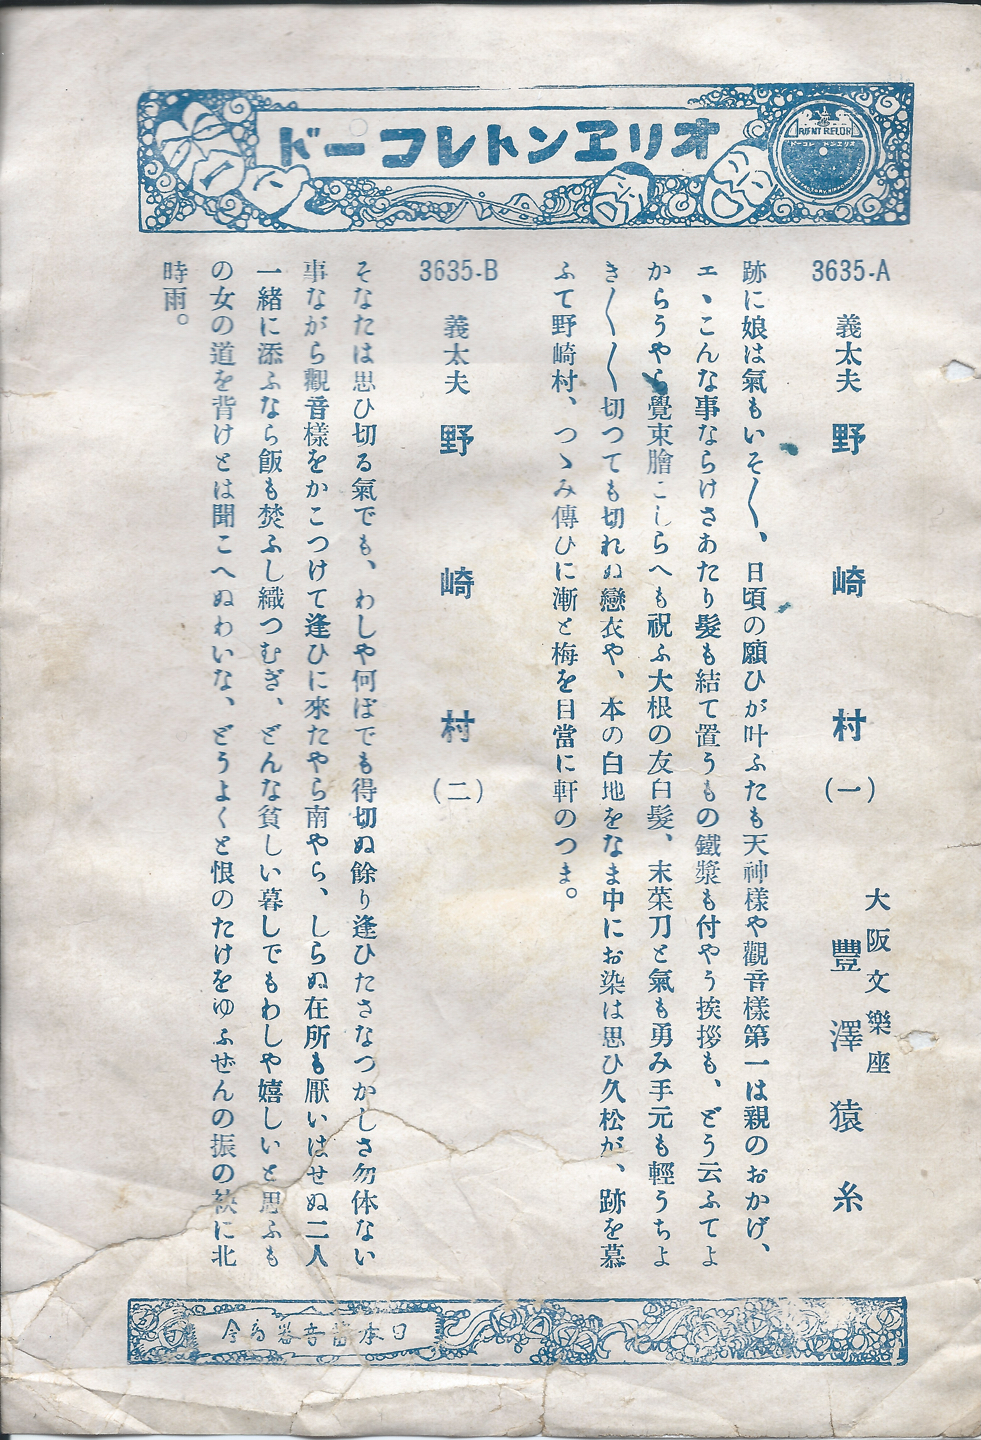 オリヱントレコード
ORIENT RECORD
オリエントレコード
3635-A
義太夫 野崎村(一)
大阪文樂座
豐澤猿糸
跡に娘は氣もいそ〱、日頃の願ひが叶ふたも天神樣や觀音樣第一は親のおかげ、
エヽこんな事ならけさあたり髮も結て置うもの鐵漿も付やう挨拶も、どう云ふてよ
からうやら覺束膾こしらへも祝ふ大根の友白髮、末菜刀と氣も勇み手元も輕うちよ
き〱〱切つても切れぬ戀衣や、本の白地をなま中にお染は思ひ久松が、跡を慕
ふて野崎村、つゝみ傳ひに漸と梅を目當に軒のつま。
3635-B
義太夫 野崎村(二)
そなたは思ひ切る氣でも、わしや何ぼでも得切ぬ餘り逢ひたさなつかしさ勿体ない
事ながら觀音樣をかこつけて逢ひに來たやら南やら、しらぬ在所も厭いはせぬ二人
一緒に添ふなら飯も焚ふし織つむぎ、どんな貧しい暮しでもわしや嬉しいと思ふも
の女の道を背けとは聞こへぬわいな、どうよくと恨のたけをゆふぜんの振の袂に北
時雨。
日本蓄音器商会